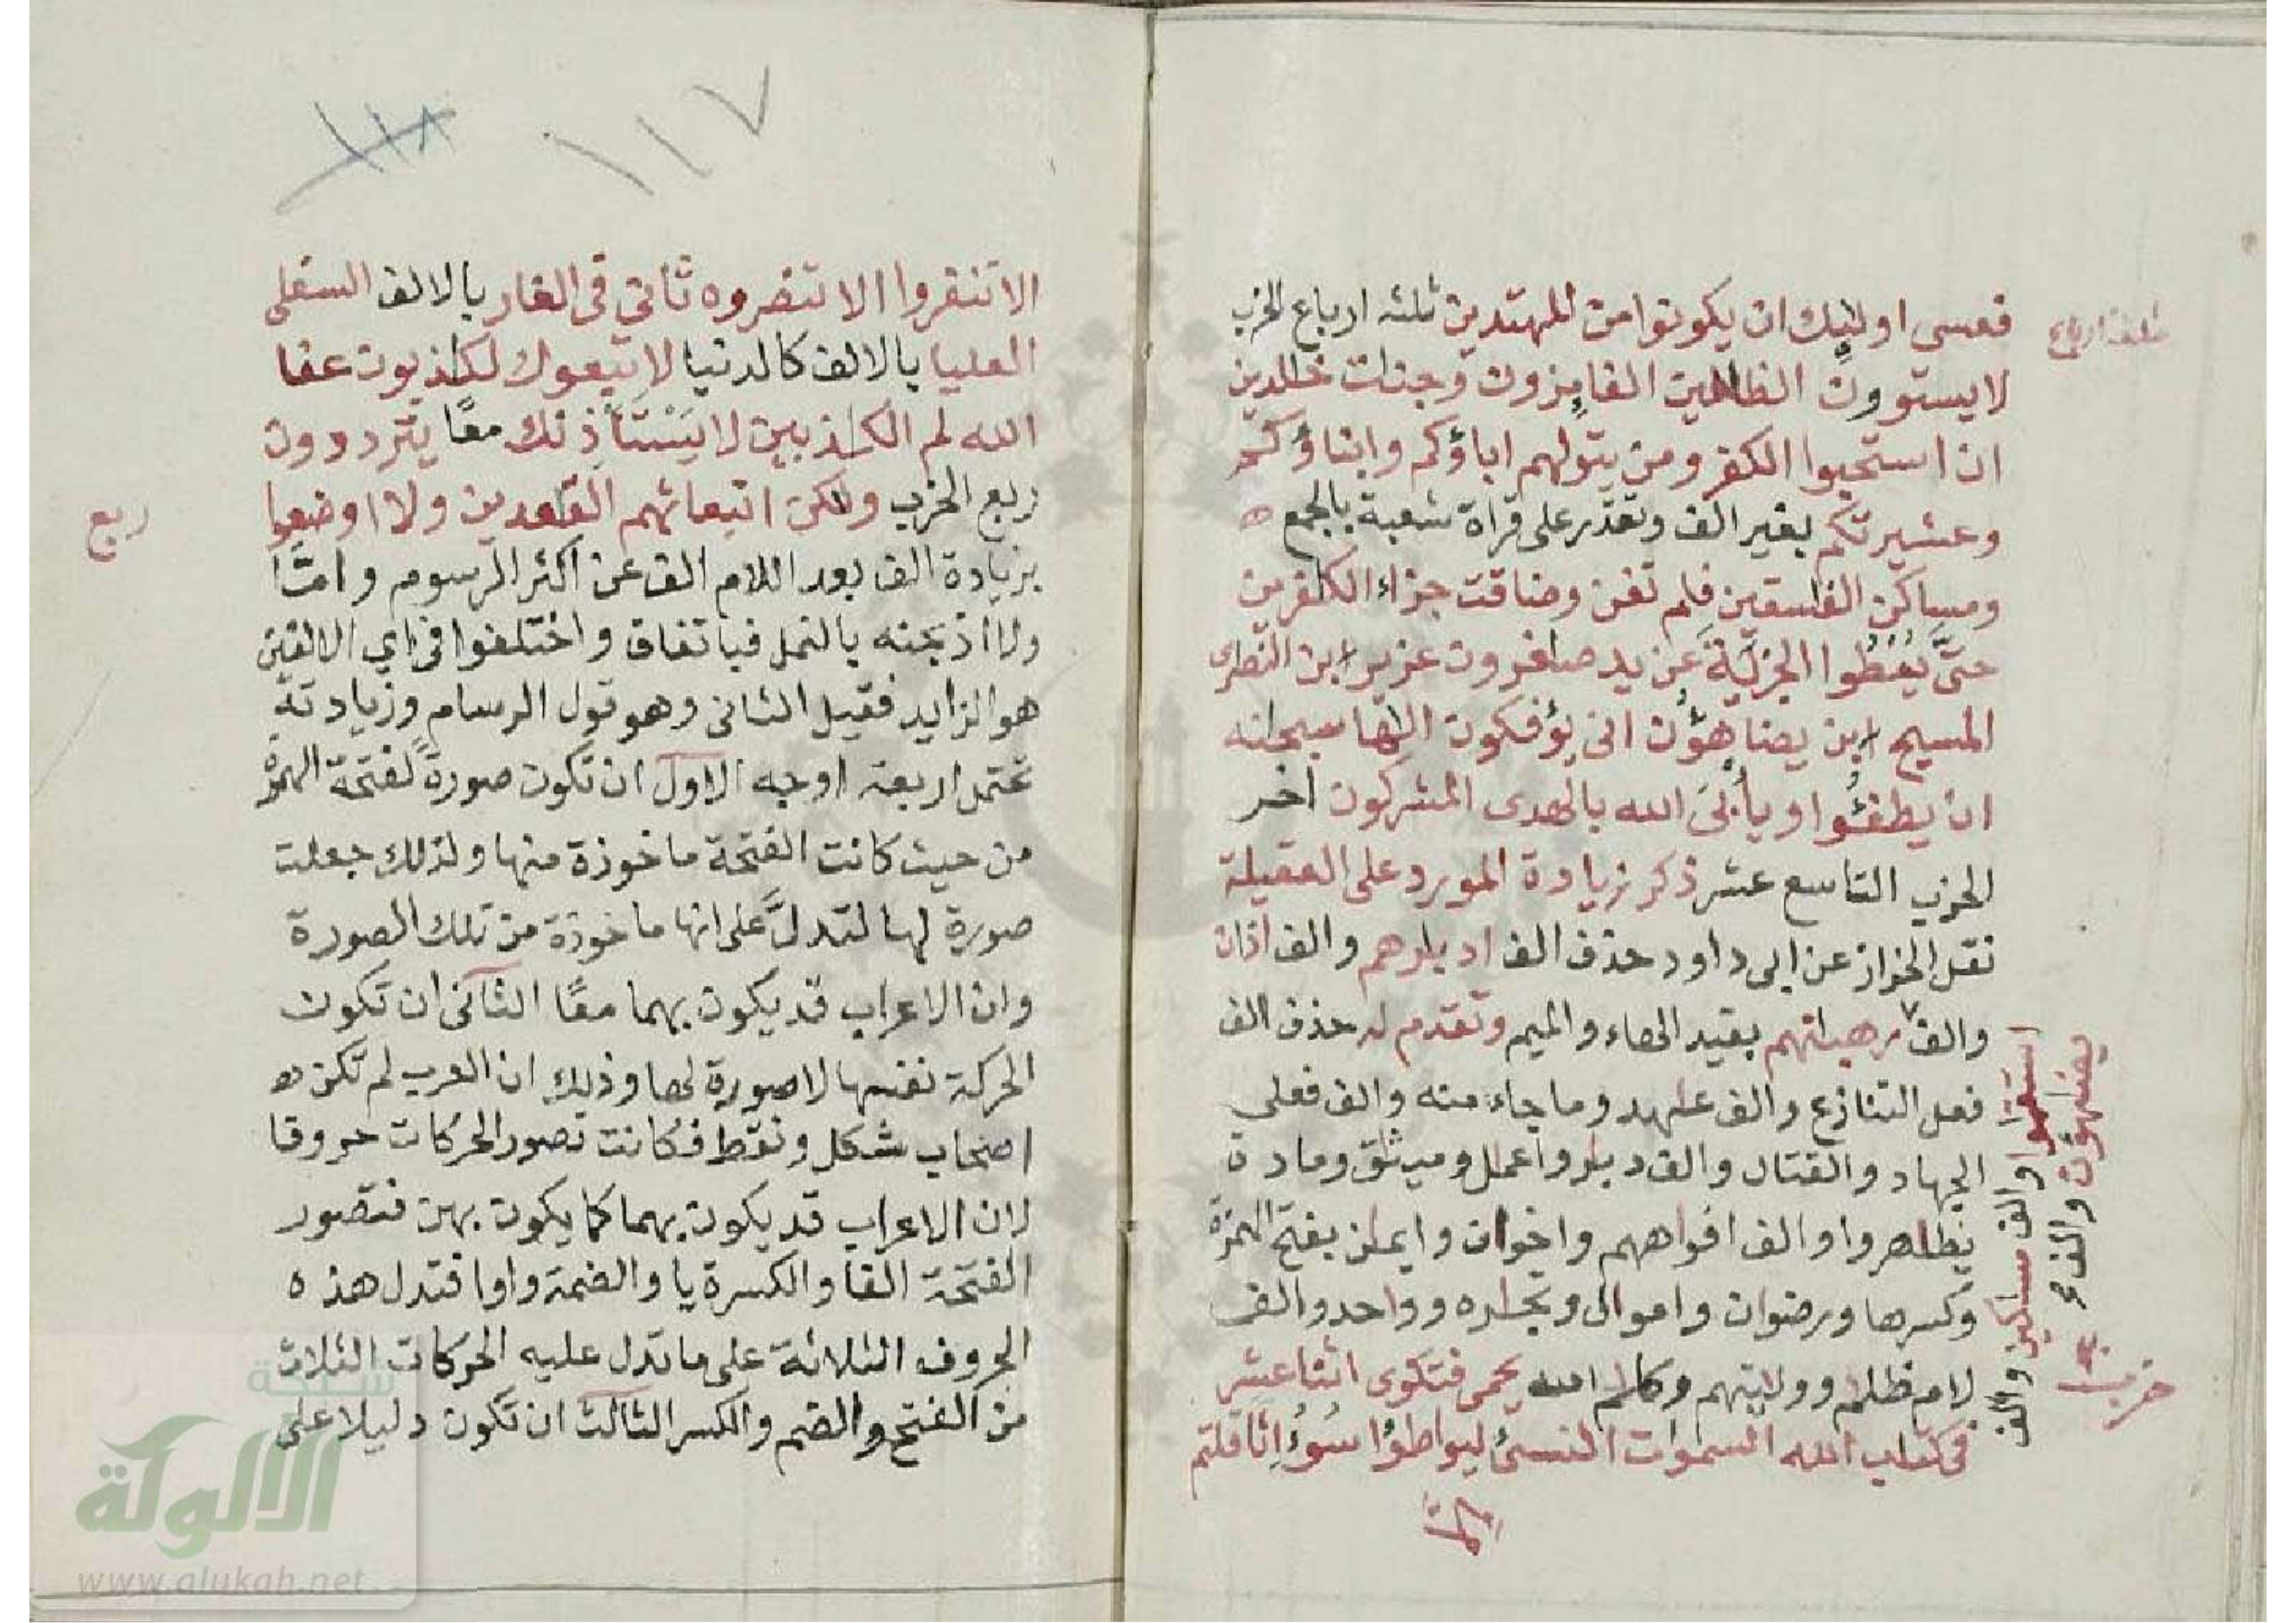 ثلثة ارباع
فعسى اوليك ان يكونوا من المهتدين ثلثه ارباع الحزب
لا يستوون الظلمين الفايزون وجنات خلدين
ان استحبوا الكفر ومن يتولهم اباؤكم وابناؤكم
وعشيرتكم بغير الف وتقدر على قراة شعبة بالجمع
ومساكن الفسقين فلم تغن وضاقت جزاء الكفرين
حتى يعطوا الجزية عن يد صاغرون عزير ابن النصرى
المسيح ابن يضاهؤن انى يؤفكون الها سبحانه
ان يطفئوا ويأبى الله بالهدى المشركون اخر
الحزب التاسع عشر ذكر زيادة المورد على العقيلة
نقل الخراز عن ابى داود حذف الف ادبرهم والف اذان
والف رهبانهم بقيد الهاء والميم وتقدم له حذف الف
فعل التنازع والف عهد وما جاء منه والف فعلى
الجهاد والقتال والف ديار واعمل وميثق ومادة
يظهروا والف افواههم واخوان وايمان بفتح الهمزة
وكسرها ورضوان واموال وتجارة وواحد والف
لام ظلم وولايتهم وكلم الله يحمى فتكوى اثنا عشر
فى كتاب الله السموات النسئ ليواطؤا سوء اثاقلتم
استقموا والف مساكن والف
يضهون والف
حزب
الا
١١٧
١١٨
الا تنفروا الا تنصروه ثانى فى الغار بالالف السفلى
العليا بالالف كالدنيا لا تبعوك لكذبون عفا
الله لم الكذبين لا يستأذنك معا يترددون
ربع الحزب ولكن انبعاثهم القعدين ولااوضعوا
بزيادة الف بعد اللام الف عن اكثر الرسوم واما
ولااذبحنه بالنمل فباتفاق واختلفوا فى اي الالفين
هو الزايد فقيل الثانى وهو قول الرسام وزيادته
تحتمل اربعة اوجه الاول ان تكون صورة لفتحة الهمزة
من حيث كانت الفتحة ماخوذة منها ولذلك جعلت
صورة لها لتدل على انها ماخوذة من تلك الصورة
وان الاعراب قد يكون بهما معا الثانى ان تكون
الحركة نفسها لا صورة لها وذلك ان العرب لم تكن
اصحاب شكل ونقط فكانت تصور الحركات حروفا
لان الاعراب قد يكون بهما كما يكون بهن فتصور
الفتحة الفا والكسرة يا والضمة واوا فتدل هذه
الحروف الثلاثة على ما تدل عليه الحركات الثلاث
من الفتح والضم والكسر الثالث ان تكون دليلا على
ربع
شبكة
الألوكة
www.alukah.net